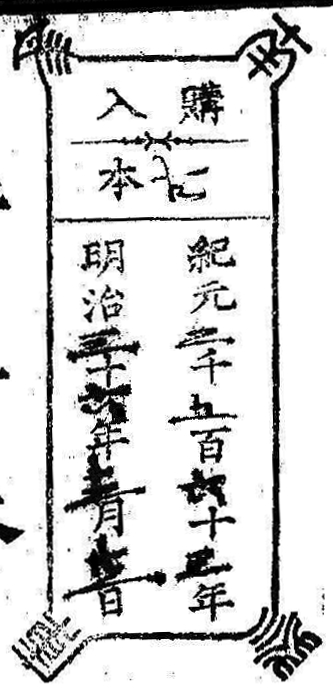 購入
本
紀元二千五百六十三年
明治三十六年 月 日